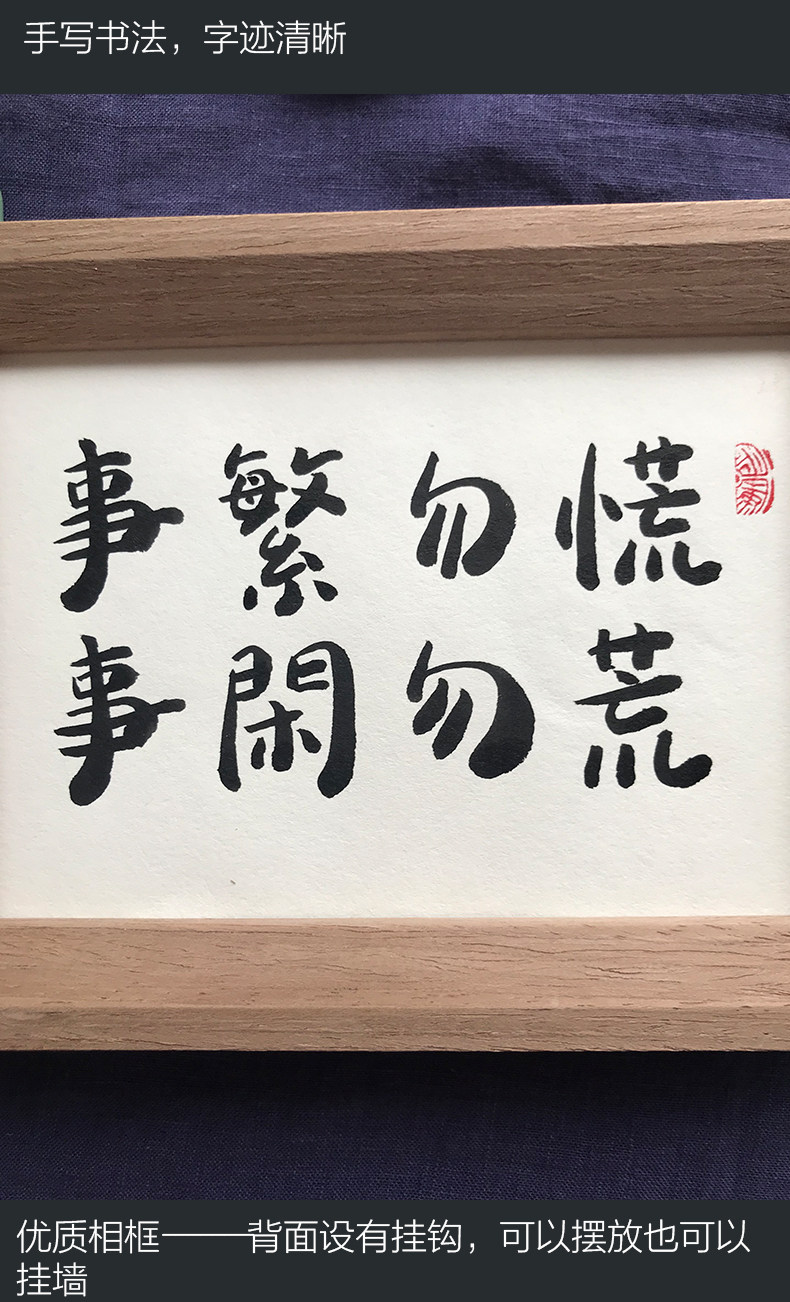 手写书法，字迹清晰
事繁勿慌
事閑勿荒
优质相框——背面设有挂钩，可以摆放也可以
挂墙